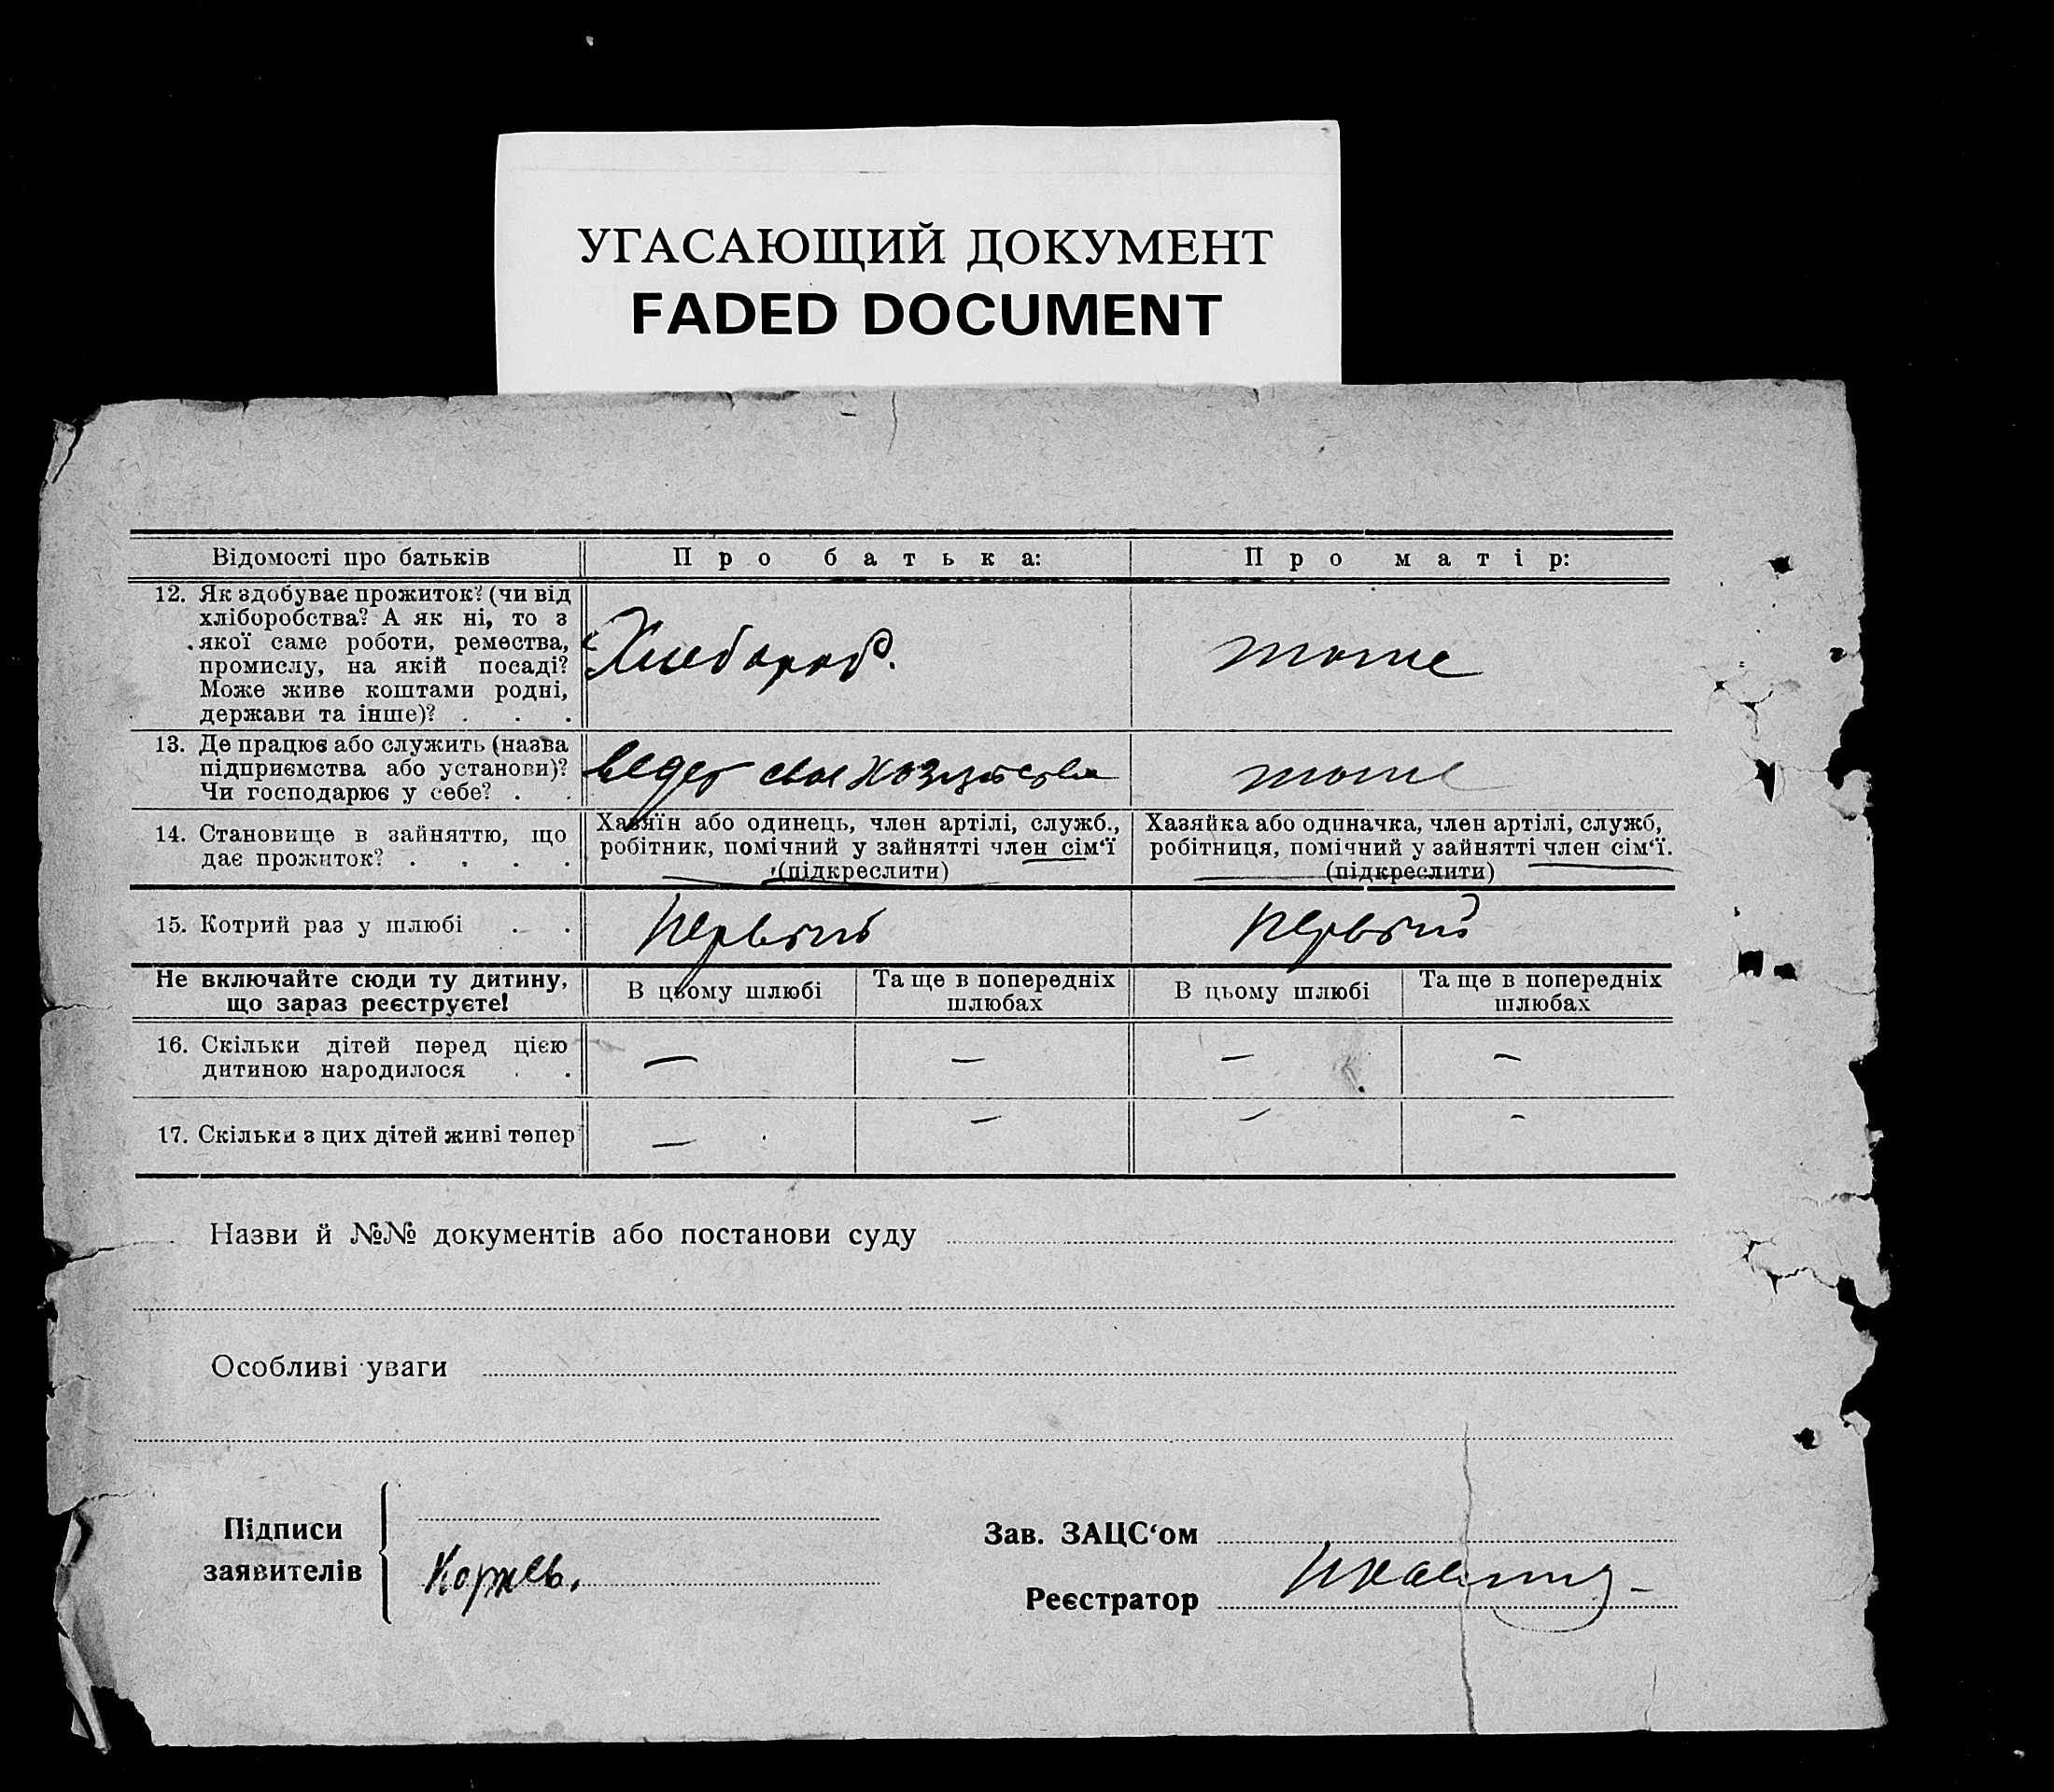 УГАСАЮЩИЙ ДОКУМЕНТ
FADED DOCUMENT
Відомості про батьків
Про батька:
Про матір:
12. Як здобуває прожиток? (чи від
хліборобства? А як ні, то з
якої саме роботи, ремества,
промислу, на якій посаді?
Може живе коштами родні,
держави та інше)? . . .
Хлебороб.
тоже
13. Де працює або служить (назва
підприємства або установи)?
Чи господарює у себе? . .
ведет свое хозяйство
тоже
14. Становище в зайняттю, що
дає прожиток? . . . .
Хазяїн або одинець, член артілі, служб.,
робітник, помічний у зайнятті член сім‘ї
(підкреслити)
Хазяйка або одиначка, член артілі, служб,
робітниця, помічний у зайнятті член сім‘ї.
(підкреслити)
15. Котрий раз у шлюбі . .
первый
первый
Не включайте сюди ту дитину,
що зараз реєструєте!
В цьому шлюбі
Та ще в попередніх
шлюбах
В цьому шлюбі
Та ще в попередніх
шлюбах
16. Скільки дітей перед цією
дитиною народилося . .
—
—
—
—
17. Скільки з цих дітей живі тепер
—
—
—
—
Назви й №№ документів або постанови суду
Особливі уваги
Підписи
заявителів
Коржев.
Зав. ЗАЦС‘ом
Реєстратор